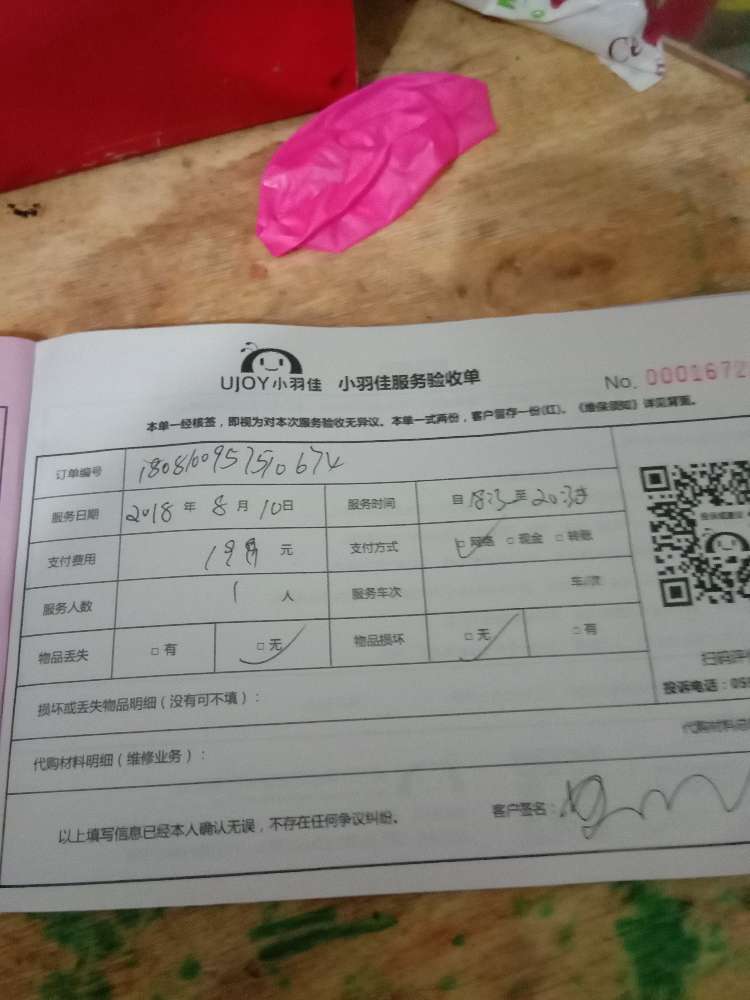 UJOY小羽佳 小羽佳服务验收单 No. 0001672
本单一经核签，即视为对本次服务验收无异议。本单一式两份，客户留存一份(红)。《维保须知》详见背面。
订单编号 1808100957510674
服务日期 2018年8月10日 服务时间 自18:3至20:3
支付费用 元 支付方式 □网络 □现金 □转账
服务人数 1人 服务车次 车/次
物品丢失 □有 □无 物品损坏 □无 □有
扫码评价
投诉电话：05
损坏或丢失物品明细（没有可不填）：
代购材料
代购材料明细（维修业务）：
以上填写信息已经本人确认无误，不存在任何争议纠纷。 客户签名：